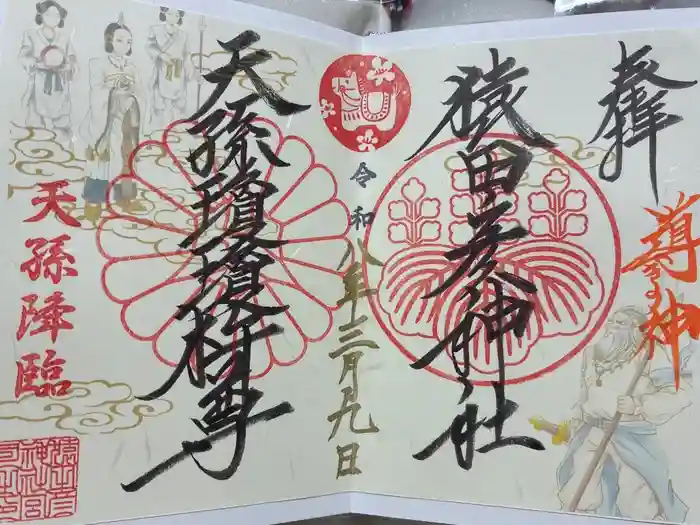 奉拝
導き神
猿田彦神社
令和八年三月九日
天孫瓊瓊杵尊
天孫降臨